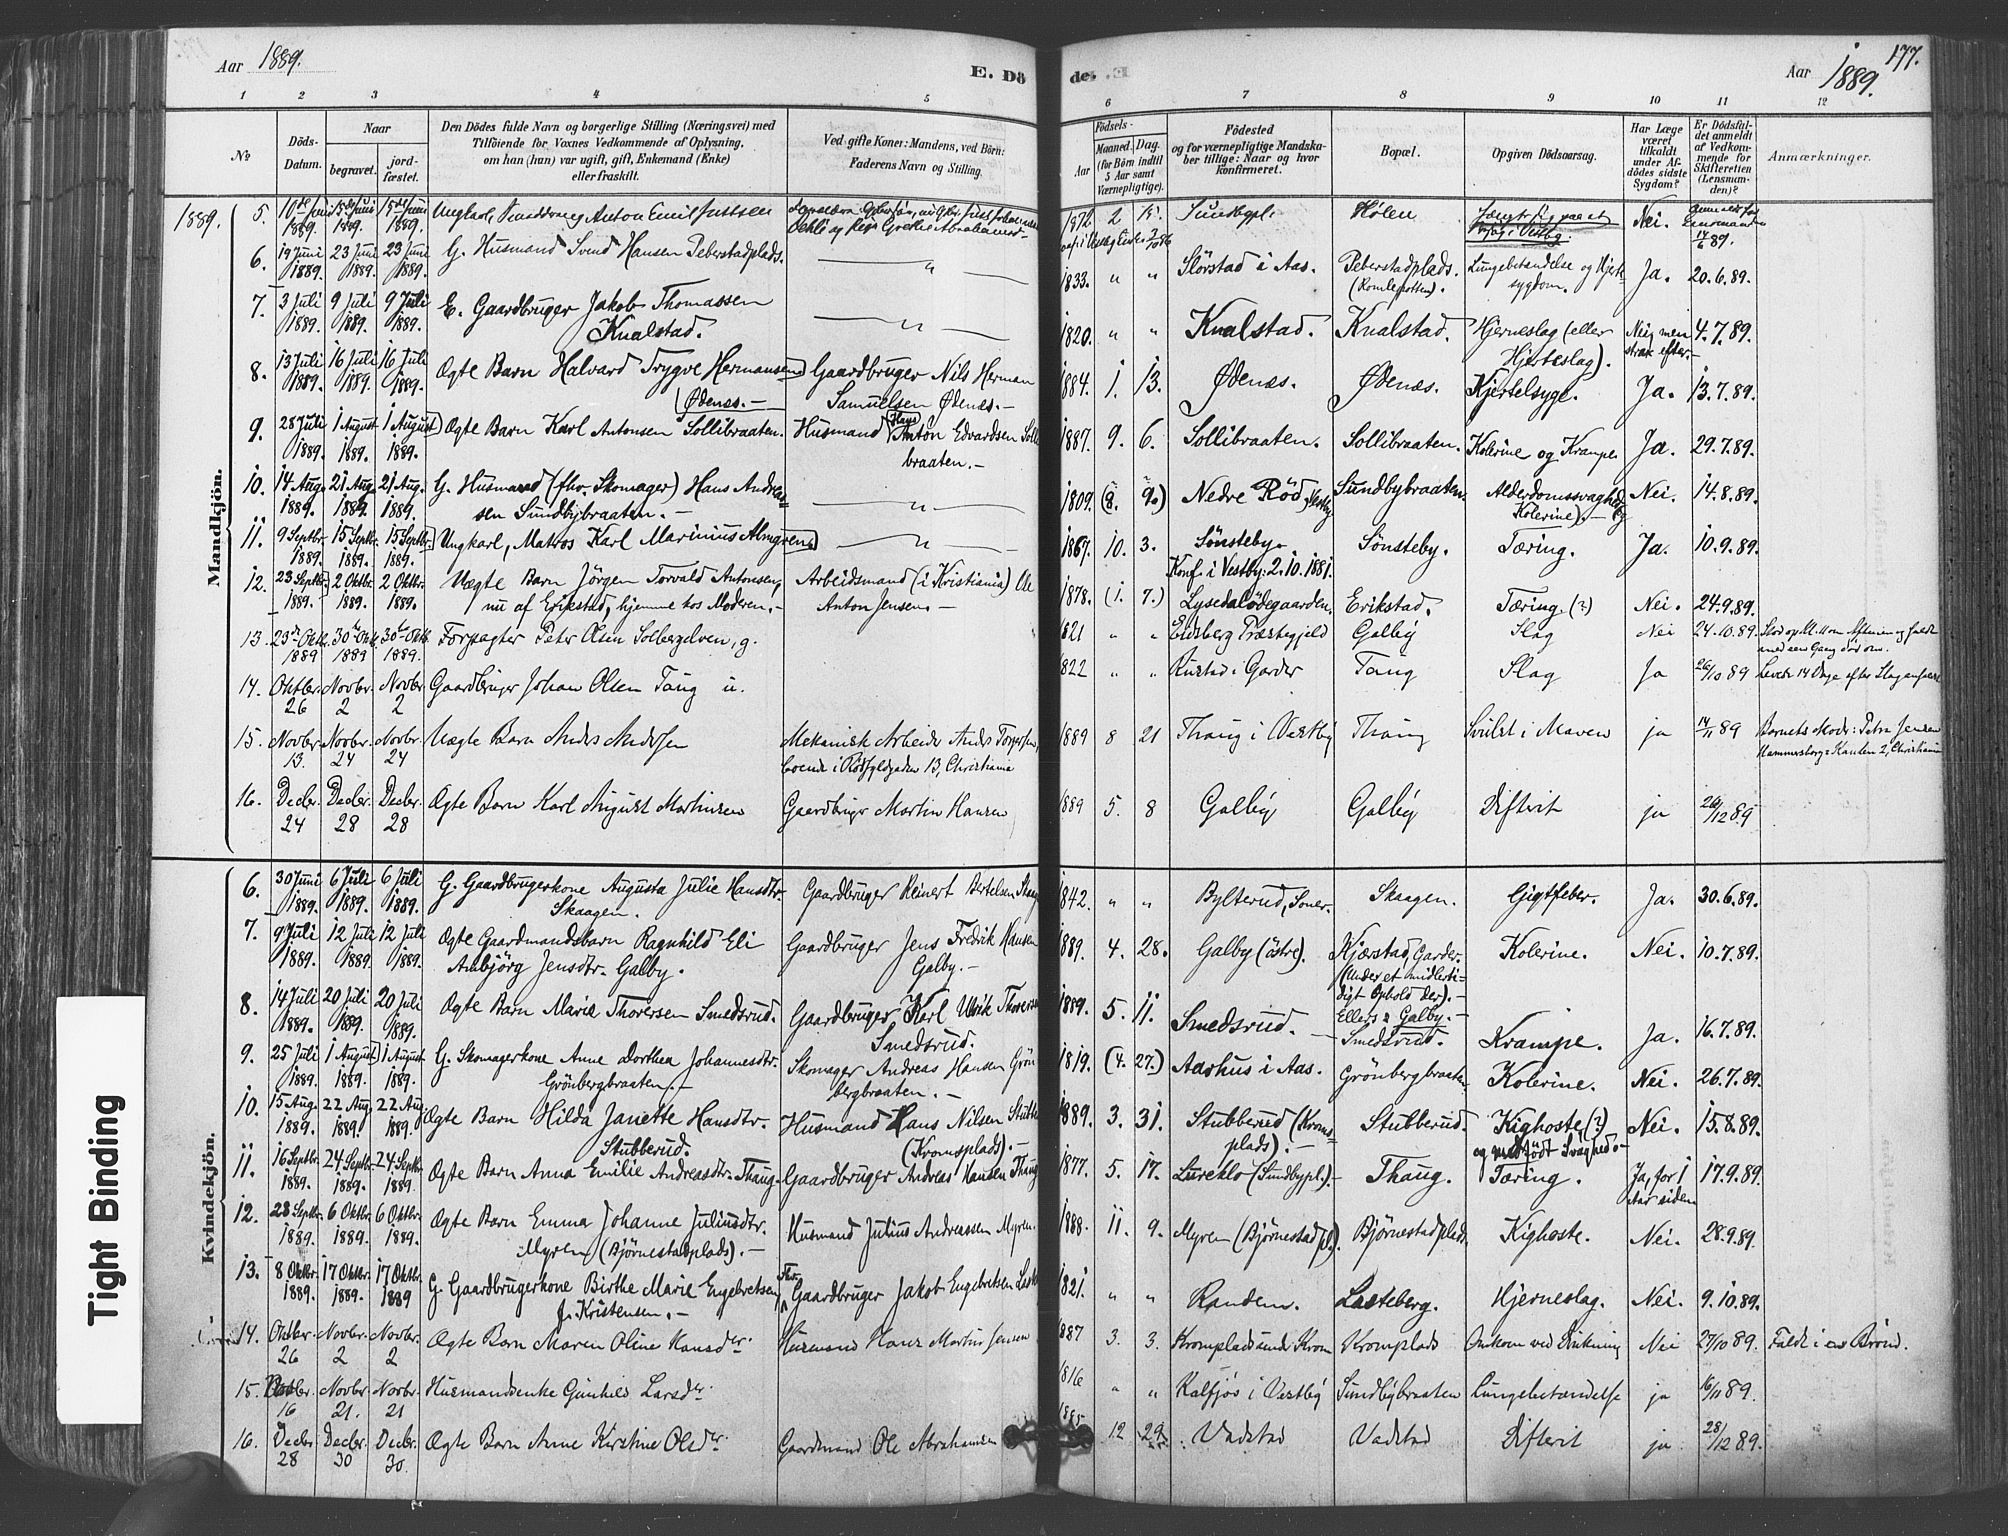 Aar 1889.
E. Dö
de. E
177.
Aar 1889.
1 2 3 4 5 6 7 8 9 10 11 12
No
Döds-Datum.
Naar
begravet.
jord-fæstet.
Den Dödes fulde Navn og borgerlige Stilling (Næringsvei) med
Tilföiende for Voxnes Vedkommende af Oplysning,
om han (hun) var ugift, gift, Enkemand (Enke)
eller fraskilt.
Ved gifte Koner: Mandens, ved Börn:
Faderens Navn og Stilling.
Födsels-
Aar
Maaned. Dag.
(for Börn indtil
5 Aar samt
Værnepligtige).
Födested
og for værnepligtige Mandska-
ber tillige: Naar og hvor
konfirmeret.
Bopæl.
Opgiven Dödsaarsag.
Har Læge
været
tilkaldt
under Af-
dödes sidste
Sygdom?
Er Dödsfal-
det anmeldt
af Vedkom-
mende for
Skifteretten
(Lensman-
den)?
Anmærkninger.
1889.
Mandkjön.
5. 1889. 1889. 1889. Ungkarl Anton Emil Justsen 1872 2 Sundbypl. Hölen Nei. 14/6 89.
6. 19 Juni 1889. 23 Juni 1889. 23 Juni 1889. G. Husmand Svend Hansen Peberstadplads. — " — 1833. " " Slörstad i Aas. Peberstadplads. Lungebetændelse og Hjerte-sygdom. Ja. 20.6.89.
7. 3 Juli 1889. 9 Juli 1889. 9 Juli 1889. E. Gaardbruger Jakob Thomassen
Knalstad. — " — 1820. " " Knalstad. Knalstad. Hjerneslag (eller
Hjerteslag). Nei, men
strax efter. 4.7.89.
8. 13 Juli 1889. 16 Juli 1889. 16 Juli 1889. Ægte Barn Halvard Trygve Hermansen
(Ödenæs. — Gaardbruger Nils Herman
Samuelsen Ödenæs. — 1884. 1. 13. Ödenæs. Ödenæs. Kjertelsyge. Ja. 13.7.89.
9. 28 Juli 1889. 1 August 1889. 1 August 1889. Ægte Barn Karl Antonsen Sollibraaten. Husmand Hans Anton Edvardsen Solli-
braaten. — 1887. 9. 6. Sollibraaten. Sollibraaten. Kolerine og Krampe. Ja. 29.7.89.
10. 14 Aug. 1889. 21 Aug. 1889. 21 Aug. 1889. G. Husmand (fhv. Skomager) Hans Andrea-
sen Sundbybraaten. — — " — 1809. (8. 9.) Nedre Röd, Vestby Sundbybraaten. Alderdomssvaghed (og
Kolerine). — Nei. 14.8.89.
11. 9 Septbr. 1889. 15 Septbr. 1889. 15 Septbr. 1889. Ungkarl, Matros Karl Marinius Almgren — " — 1867. 10. 3. Sönsteby.
Konf. i Vestby: 2.10.1881. Sönsteby. Tæring. Ja. 10.9.89.
12. 23 Septbr. 1889. 2 Oktbr. 1889. 2 Oktbr. 1889. Uægte Barn Jörgen Torvald Antonsen,
nu af Erikstad, hjemme hos Moderen. — Arbeidsmand (i Kristiania) Ole
Anton Jensen. — 1878. (1. 7.) Lysedalödegaarden. Erikstad. Tæring. (?) Nei. 24.9.89.
13. 23de Oktb. 1889 30te Oktb. 1889 30te Oktb. 1889. Forpagter Peter Olsen Solbergelven, g. 1821 " " Eidsberg Præstegjeld Galby Slag Nei 24.10.89.
14. Oktbr. 26 Novbr. 2 Novbr. 2 Gaardbruger Johan Olsen Taug u. 1822 " " Rustad i Garder Taug Slag Ja 26/10 89 Levede 14 Dage efter Slaganfaldet
15. Novbr. 13. Novbr. 24 Novbr. 24 Uægte Barn Anders Andersen Mekanisk Arbeider Anders
boende i 13, Christiania 1889 8 21 Thaug i Vestby Thaug Svulst i Maven ja 14/11 89 Barnets Moder: Petra Jensen
Hammersborg 2, Christiania
16. Decbr. 24 Decbr. 28 Decbr. 28 Ægte Barn Karl August Martinsen Gaardbrugr Martin Hansen 1889 5. 8 Galby Galby Difterit ja 26/12 89
Kvindekjön.
6. 30 Juni 1889. 6 Juli 1889. 6 Juli 1889. G. Gaardbrugerkone Augusta Julie Hansdtr.
Skaagen. Gaardbruger Reinert Bertelsen Skaag 1842. " " Bylterud, Soner. Skaagen. Gigtfeber. Ja. 30.6.89.
7. 9 Juli 1889. 12 Juli 1889. 12 Juli 1889. Ægte Gaardmandsbarn Ragnhild Eli
Ambjörg Jensdtr. Galby. Gaardbruger Jens Fredrik Hansen
Galby. — 1889. 4. 28. Galby (östre). Kjærstad, Garder.
(Under et midlerti-
digt Ophold der). —
Ellers: Galby. — Kolerine. Nei. 10.7.89.
8. 14 Juli 1889. 20 Juli 1889. 20 Juli 1889. Ægte Barn Marie Thoresen Smedsrud. Gaardbruger Karl Ulrik Thoresen
Smedsrud. 1889. 5. 11. Smedsrud. Smedsrud. Krampe. Ja. 16.7.89.
9. 25 Juli 1889. 1 August 1889. 1 August 1889. G. Skomagerkone Anne Dorthea Johannesdtr.
Grönbergbraaten. — Skomager Andreas Hansen Grön-
bergbraaten. — 1819. (4. 27.) Aarhus i Aas. Grönbergbraaten Kolerine. Nei. 26.7.89.
10. 15 Aug. 1889. 22 Aug. 1889. 22 Aug. 1889. Ægte Barn Hilda Janette Hansdtr.
Stubberud. Husmand Hans Nilsen Stubbe
(Kromsplads). — 1889. 3. 31. Stubberud (Kroms-
plads). — Stubberud. Kighoste (?)
og medfödt Svaghed. — Nei. 15.8.89.
11. 16 Septbr. 1889. 24 Septbr. 1889. 24 Septbr. 1889. Ægte Barn Anna Emilie Andreasdtr. Thaug. Gaardbruger Andreas Hansen Thaug 1877. 5. 17. Lureklo (Sundbypl.). — Thaug. Tæring. Ja, for 1
Aar siden 17.9.89.
12. 28 Septbr. 1889. 6 Oktbr. 1889. 6 Oktbr. 1889. Ægte Barn Emma Johanne Juliusdtr.
Myren (Bjørnestadplads). — Husmand Julius Andreassen Myren. 1888. 11. 9. Myren (Bjørnestadpl.). Bjørnestadplads. Kighoste. Nei. 28.9.89.
13. 8 Oktbr. 1889. 17 Oktbr. 1889. 17 Oktbr. 1889 G. Gaardbrugerkone Birthe Marie Engebretsen
f. Kristensen. — Fhv. Gaardbruger Jakob Engebretsen Laste 1821. " " Randem. Lasteberg. Hjerneslag. Nei. 9.10.89.
14. Oktbr. 26 Novbr. 2 Novbr. 2 Ægte Barn Maren Oline Hansdr. Husmand Hans Martin Jensen 1887 3. 3. Kromplads under Krom Kromplads Omkom ved Drukning Nei 27/10 89. Faldt i en Brönd.
15. 16 Novbr. 21. Novbr. 21 Husmandsenke Gunhild Larsdr. 1816 " " Kalfjös i Vestby Sundbybraaten Lungebetændelse ja 16/11 89.
16. Decbr. 28 Decbr. 30 Decbr. 30. Ægte Barn Anne Kirstine Olsdr. Gaardmand Ole Abrahamsen 1885 12 29 Vadstad Vadstad Difterit ja 28/12 89.
Tight Binding